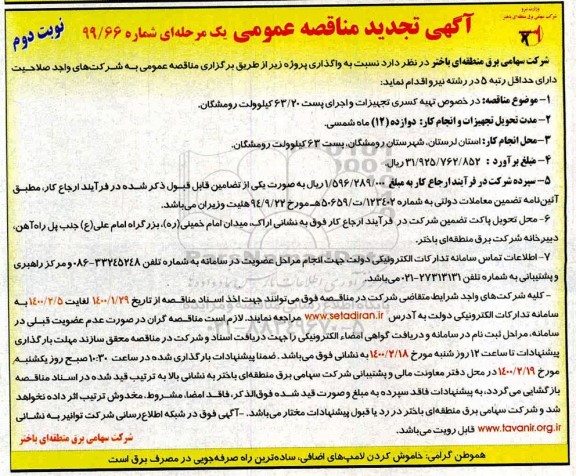 وزارت نیرو
شرکت سهامی برق منطقه ای باختر
آگهی تجدید مناقصه عمومی یک مرحله‌ای شماره ۹۹/۶۶
نوبت دوم
شرکت سهامی برق منطقه‌ای باختر در نظر دارد نسبت به واگذاری پروژه زیر از طریق برگزاری مناقصه عمومی به شرکت‌های واجد صلاحیت
دارای حداقل رتبه ۵ در رشته نیرو اقدام نماید:
۱- موضوع مناقصه: در خصوص تهیه کسری تجهیزات و اجرای پست ۶۳/۲۰ کیلوولت رومشگان.
۲- مدت تحویل تجهیزات و انجام کار: دوازده (۱۲) ماه شمسی.
۳- محل انجام کار: استان لرستان، شهرستان رومشگان، پست ۶۳ کیلوولت رومشگان.
۴- مبلغ برآورد : ۳۱/۹۲۵/۷۶۲/۸۵۲ ریال.
۵- سپرده شرکت در فرآیند ارجاع کار به مبلغ ۱/۵۹۶/۲۸۹/۰۰۰ ریال به صورت یکی از تضامین قابل قبول ذکر شده در فرآیند ارجاع کار، مطابق
آئین‌نامه تضمین معاملات دولتی به شماره ۱۲۳۴۰۲/ت/۵۰۶۵۹هـ مورخ ۹۴/۹/۲۲ هئیت وزیران می‌باشد.
۶- محل تحویل پاکت تضمین شرکت در فرآیند ارجاع کار فوق به نشانی اراک، میدان امام خمینی(ره)، بزرگراه امام علی(ع) جنب پل راه‌آهن،
دبیرخانه شرکت برق منطقه‌ای باختر.
۷- اطلاعات تماس سامانه تدارکات الکترونیکی دولت جهت انجام مراحل عضویت در سامانه به شماره تلفن ۳۳۲۴۵۲۴۸-۰۸۶ و مرکز راهبری
و پشتیبانی به شماره تلفن ۲۷۳۱۳۱۳۱-۰۲۱ می‌باشد.
- کلیه شرکت‌های واجد شرایط متقاضی شرکت در مناقصه فوق می‌توانند جهت اخذ اسناد مناقصه از تاریخ ۱۴۰۰/۱/۲۹ لغایت ۱۴۰۰/۲/۵ به
سامانه تدارکات الکترونیکی دولت به آدرس www.setadiran.ir مراجعه نمایند. لازم است مناقصه گران در صورت عدم عضویت قبلی در
سامانه، مراحل ثبت نام در سامانه و دریافت گواهی امضاء الکترونیکی را جهت دریافت اسناد و شرکت در مناقصه محقق سازند. مهلت بارگذاری
پیشنهادات تا ساعت ۱۲ روز شنبه مورخ ۱۴۰۰/۲/۱۸ به نشانی فوق می‌باشد. ضمنا پیشنهادات بارگذاری شده در ساعت ۱۰:۳۰ صبح روز یکشنبه
مورخ ۱۴۰۰/۲/۱۹ در محل دفتر معاونت مالی و پشتیبانی شرکت سهامی برق منطقه‌ای باختر به نشانی بالا به ترتیب قید شده در اسناد مناقصه
بازگشایی می‌گردد. به پیشنهادات فاقد سپرده به مبلغ و صورت قید شده فوق‌الذکر، فاقد امضا، مشروط، مخدوش ترتیب اثر داده نخواهد
شد و شرکت سهامی برق منطقه‌ای باختر در رد یا قبول پیشنهادات مختار می‌باشد. - آگهی فوق در شبکه اطلاع‌رسانی شرکت توانیر به نشانی
www.tavanir.org.ir قابل رویت می‌باشد.
شرکت سهامی برق منطقه‌ای باختر
هموطن گرامی: خاموش کردن لامپ‌های اضافی، ساده‌ترین راه صرفه‌جویی در مصرف برق است